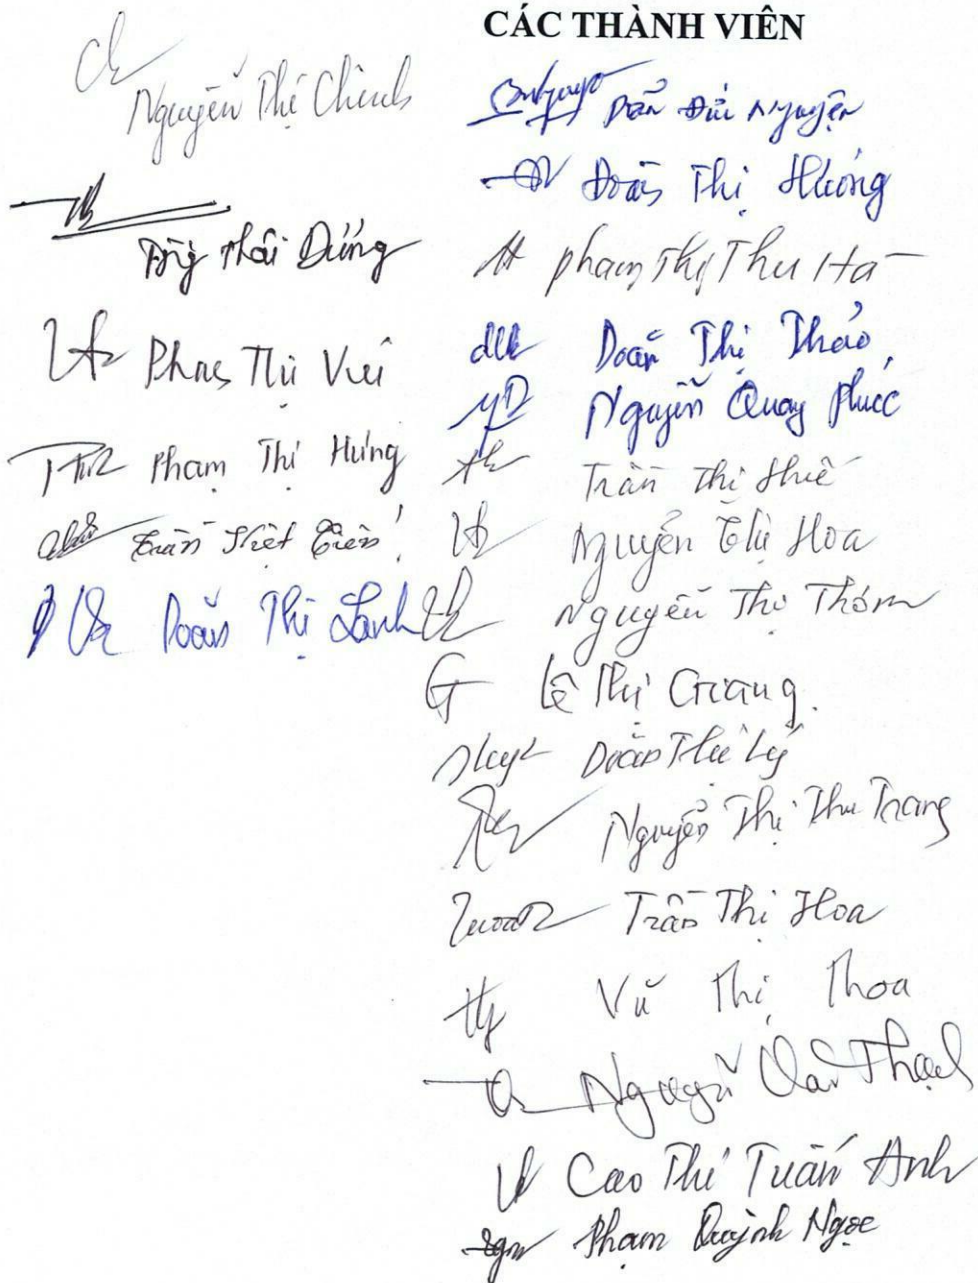 CÁC THÀNH VIÊN
Nguyễn Thị Chinh
Thái Dũng
Phạm Thị Vui
Phạm Thị Hưng
Trần Việt Tiến
Doãn Thị Lanh
Trần Đức Nguyện
Doãn Thị Hường
Phạm Thị Thu Hà
Doãn Thị Thảo
Nguyễn Quang Phúc
Trần Thị Huế
Nguyễn Thị Hoa
Nguyễn Thị Thơm
Lê Thị Giang.
Doãn Thị Lý
Nguyễn Thị Thu Trang
Trần Thị Hoa
Vũ Thị Thoa
Nguyễn Văn Thạch
Cao Thị Tuấn Anh
Phạm Quỳnh Ngọc